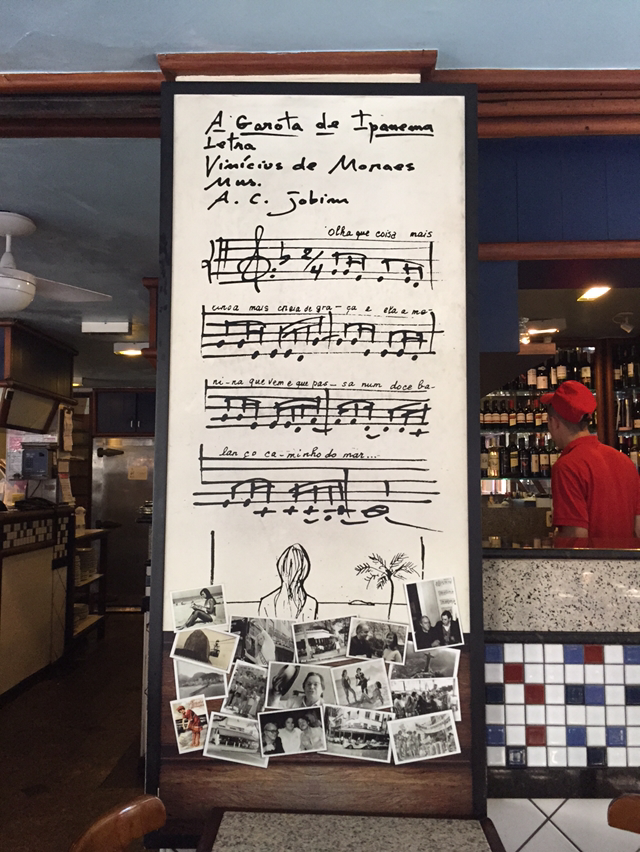 A Garota de Ipanema
Letra
Vinícius de Moraes
Mus.
A. C. Jobim
Olha que coisa mais
2/4
linda mais cheia de gra - ça e ela a me-
ni - na que vem e que pas - sa num doce ba-
lan ço ca - minho do mar...